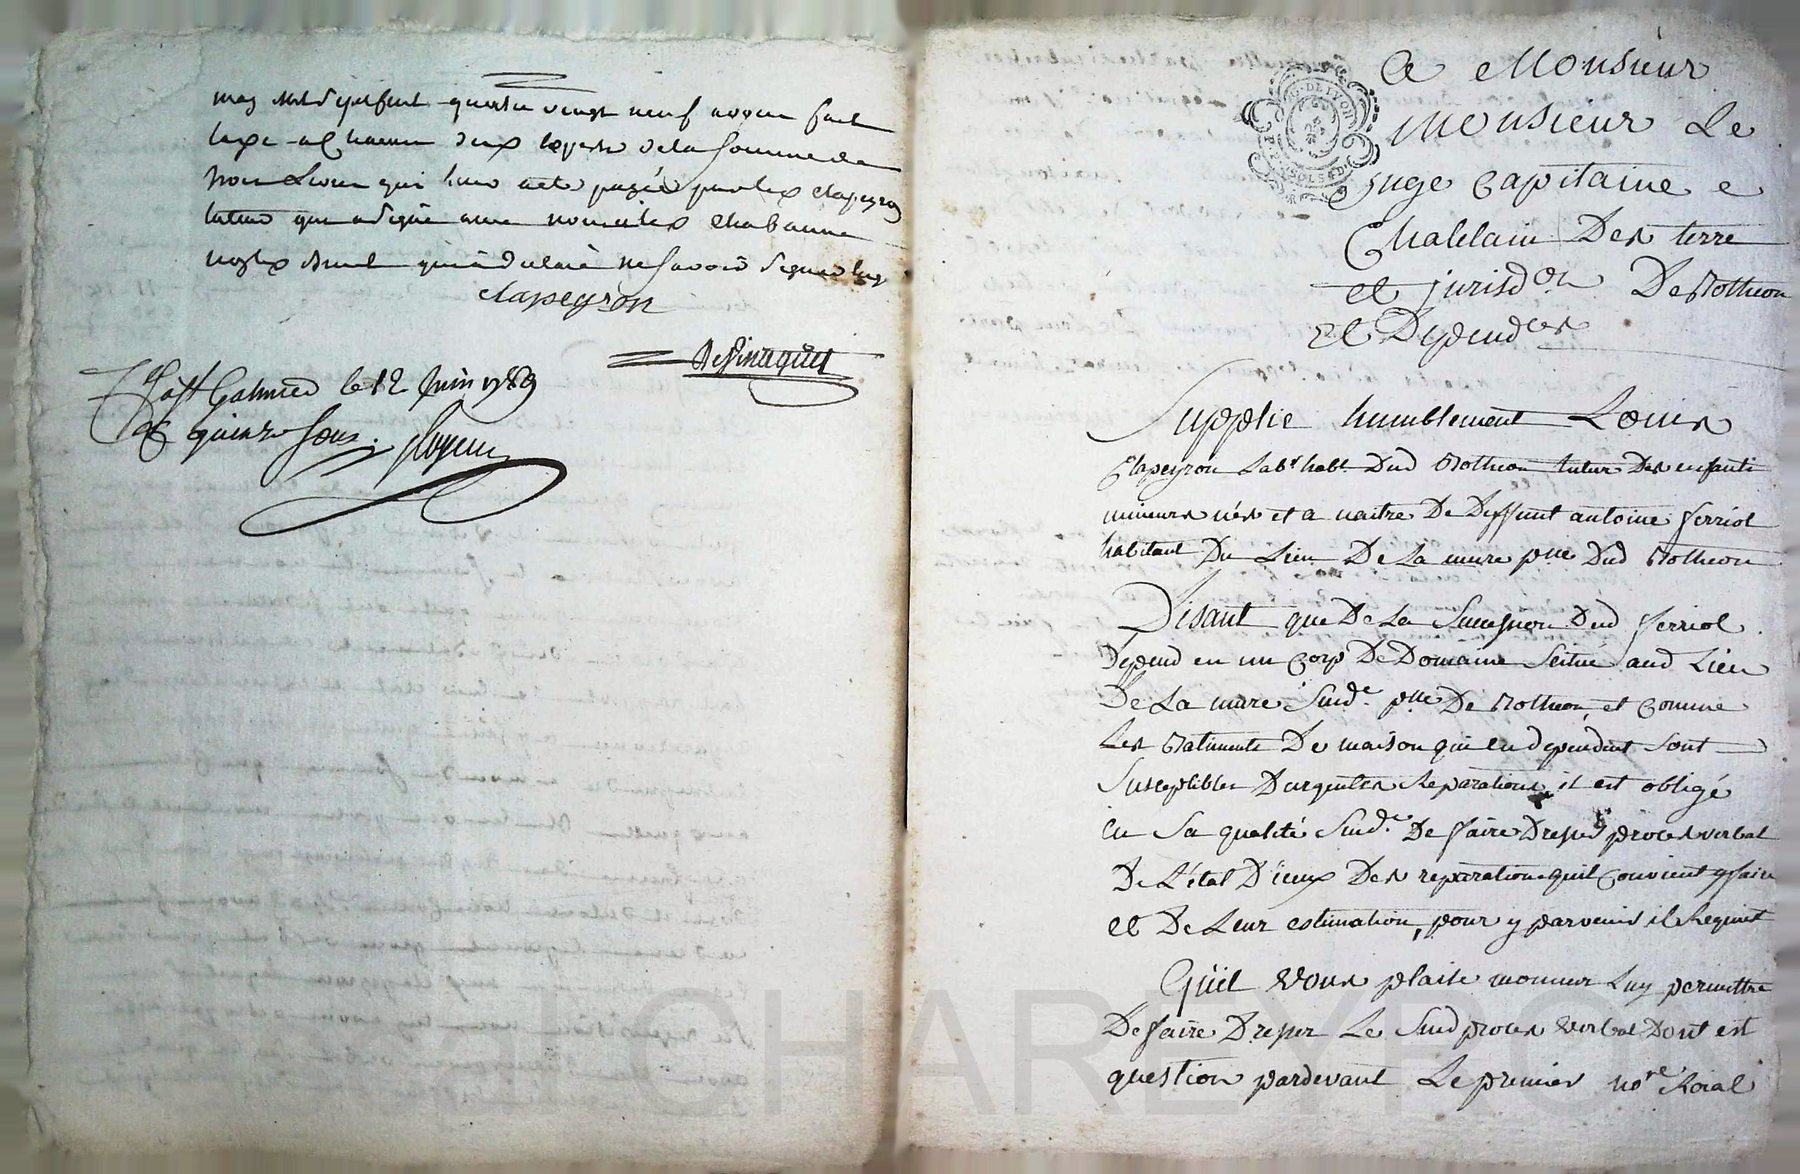 may mil sept cent quatre vingt neuf avons fait
taxe a chacun deux experts de la somme de
trois Livres qui leur a été payée par lex Clapeyron
tuteur qui a signé avec nous et lex Chabanne
expert enquis a declaré ne savoir signer
clapeyron
Cllé a St Galmier le 12 Juin 1789
Reç quinze sous.
a Monsieur
Monsieur Le
Juge Capitaine
Chatelain Des terre
et jurisdon De Rotheon
et Dependces
Supplie humblement Louis
Clapeyron Labr habt Dud Rotheon tuteur Des enfants
mineurs nés et a naitre De Deffunt antoine ferriol
habitant Du Lieu De La mure psse Dud Rotheon
Disant que De La Succession Dud ferriol
Depend en un Corp De Domaine Scitué aud Lieu
De La mure Susde psse De Rotheon, et Comme
Les Batiments De maison qui en dependent Sont
Susceptibles Durgentes Reparations, il est obligé
en Sa qualité Susde De faire Dresser proces verbal
De L'état D'iceux Des reparations quil Convient y faire
et De Leur estimation, pour y parvenir il Requiert
Qu'il Vous plaise monsieur Luy permettre
De faire Dresser Le Susd proces verbal Dont est
question pardevant Le premier nore Roial
CHAREYRON